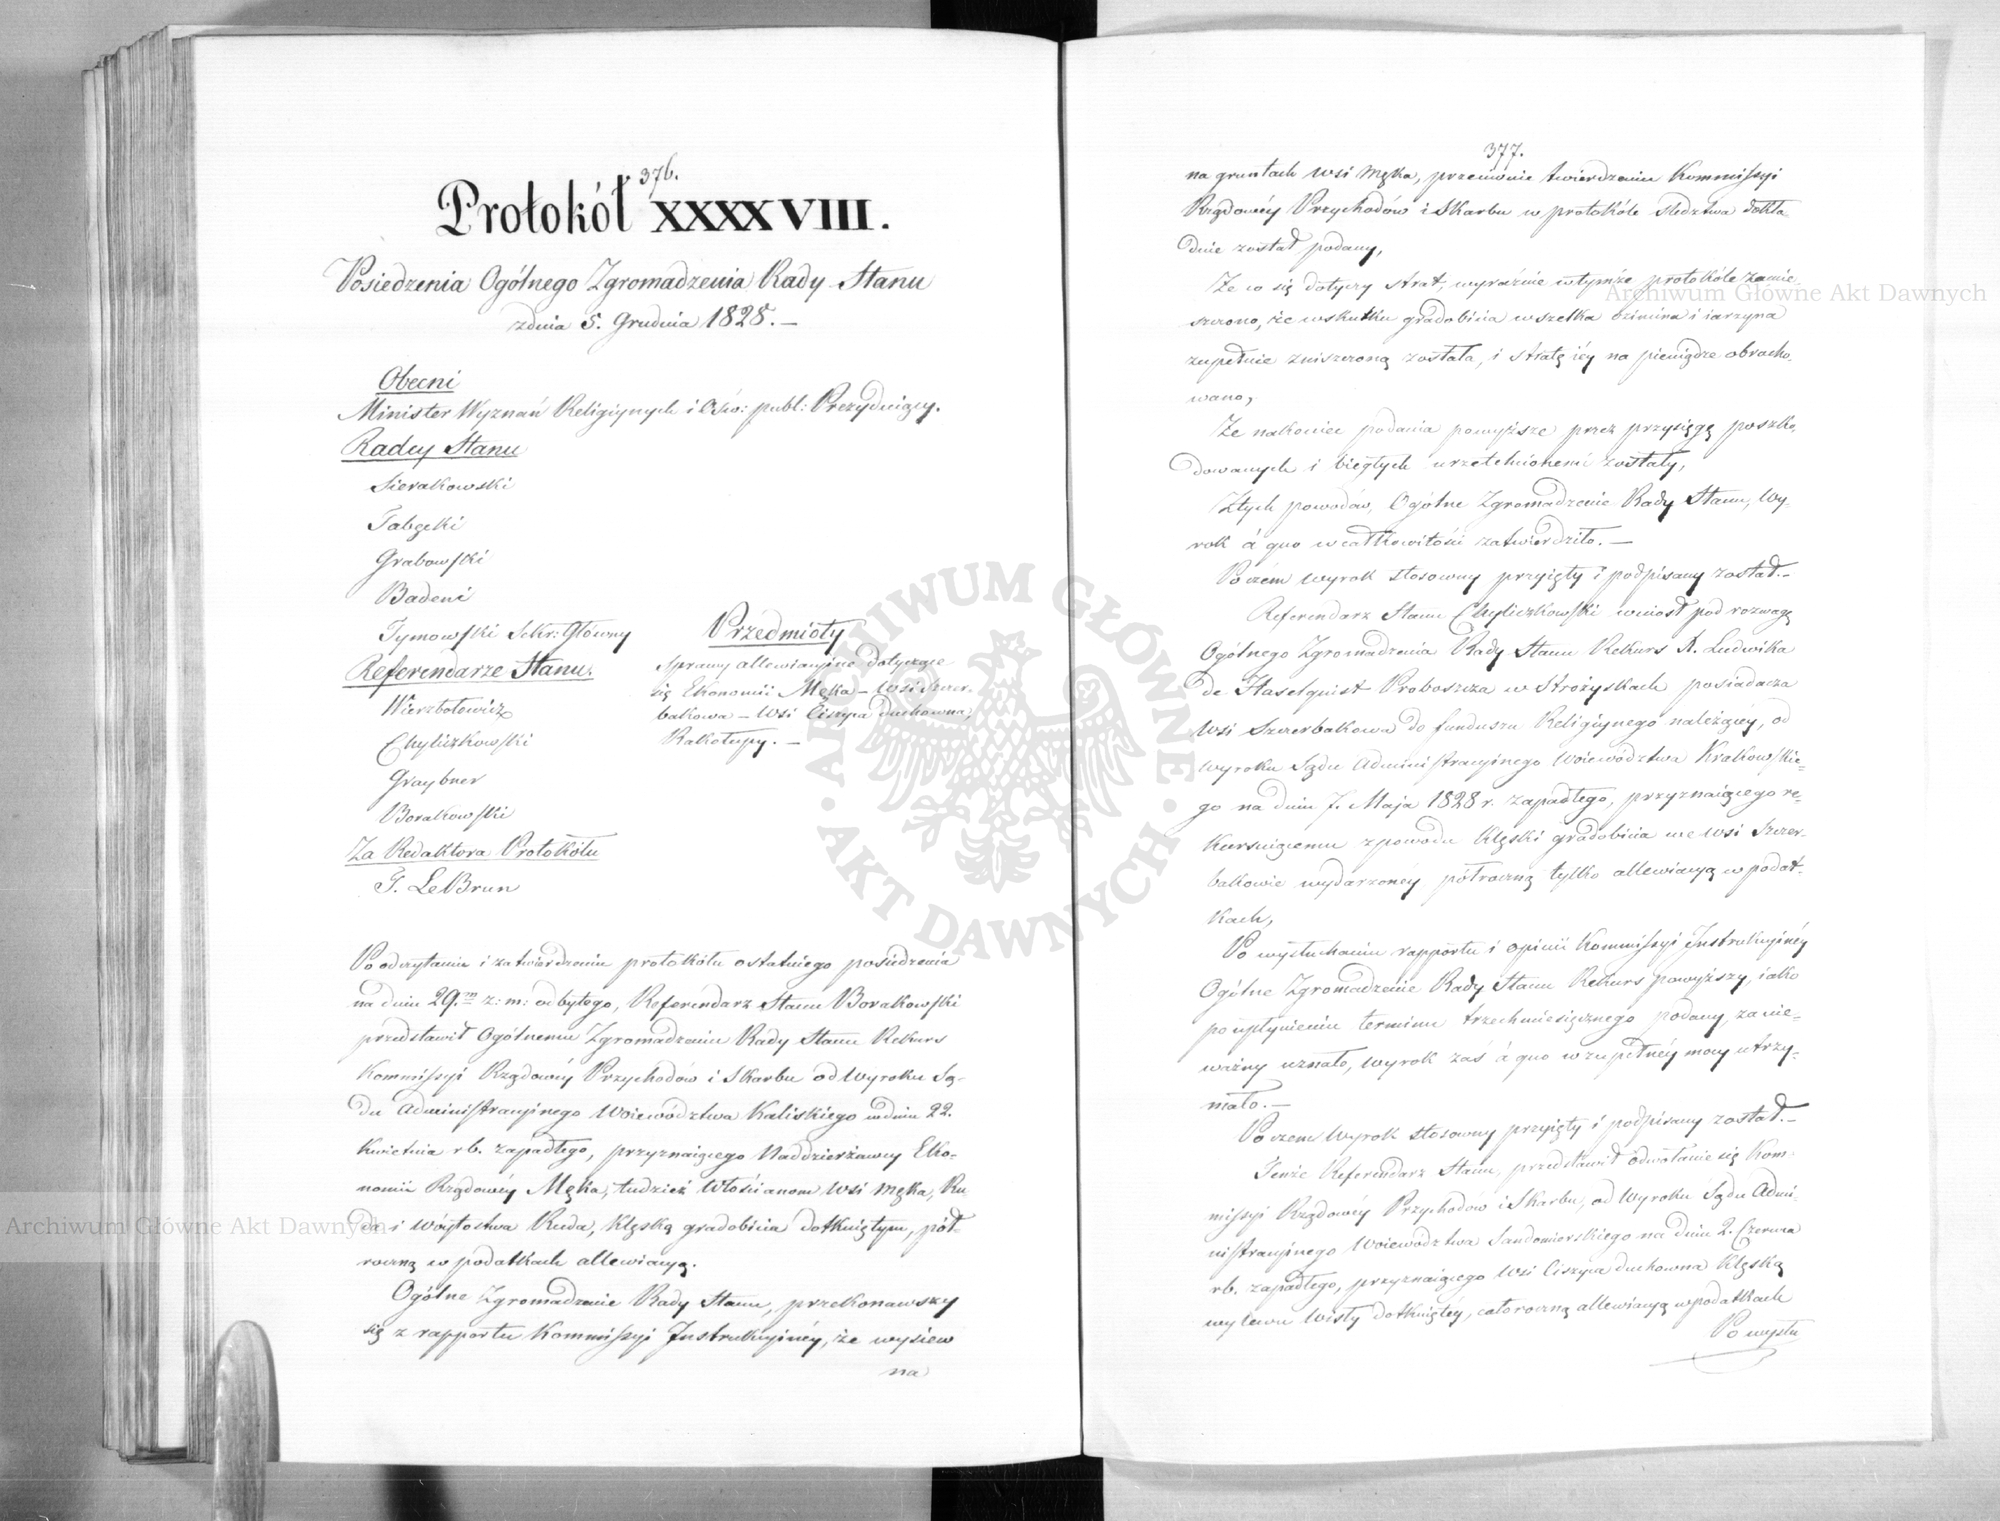 376.
Protokół XXXXVIII.
Posiedzenia Ogólnego Zgromadzenia Rady Stanu
zdnia 5. Grudnia 1828. —
Obecni
Minister Wyznań Religiynych i Ośw: publ: Prezyduiący.
Radcy Stanu
Sierakowski
Tabęcki
Grabowski
Badeni
Tymowski Sekr: Główny
Referendarze Stanu.
Wierzbołowicz
Chyliczkowski
Graybner
Borakowski
Za Redaktora Protokółu
T. LeBrun
Przedmioty
Sprawy allewiacyjne dotyczące
się Ekonomii Męka — Wsi Szczer-
bakowa — Wsi Ciszyca duchowna,
Rakołupy. —
Po odczytaniu i zatwierdzeniu protokółu ostatniego posiedzenia
na dniu 29.m z: m: odbytego, Referendarz Stanu Borakowski
przedstawił Ogólnemu Zgromadzeniu Rady Stanu Rekurs
Kommissyi Rządowéy Przychodów i Skarbu od Wyroku Są-
du Administracyjnego Województwa Kaliskiego w dniu 22.
Kwietnia rb. zapadłego, przyznaiącego Naddzierżawcy Eko-
nomii Rządowéy Męka, tudzież Włościanom Wsi Męka, Ru
da i Wóytostwa Ruda, klęską gradobicia dotkniętym, pół-
roczną w podatkach allewiacyą.
Ogólne Zgromadzenie Rady Stanu, przekonawszy
się z rapportu Kommissyi Instrukcyinéy, że wysiew
na
377.
na gruntach wsi Męka, przeciwnie twierdzeniu Kommissyi
Rządowéy Przychodów i Skarbu w protokóle śledztwa dokła
dnie został podany,
Że co się dotyczy strat, wyraźnie w tymże protokóle zamie-
szczono, że w skutku gradobicia wszelka ozimina i iarzyna
zupełnie zniszczoną została, i stratę iéy na pieniądze obracho-
wano,
Że nakoniec podania powyższe przez przysięgę poszko-
dowanych i biegłych urzetelnionemi zostały,
Z tych powodów, Ogólne Zgromadzenie Rady Stanu, Wy-
rok á quo w całkowitości zatwierdziło. —
Poczém wyrok stosowny przyięty i podpisany został. —
Referendarz Stanu Chyliczkowski wniosł pod rozwagę
Ogólnego Zgromadzenia Rady Stanu Rekurs X. Ludwika
de Haselquist Proboszcza w Strożyskach posiadacza
Wsi Szczerbakowa do funduszu Religiynego należącéy, od
Wyroku Sądu Administracyjnego Województwa Krakowskie-
go na dniu 7. Maja 1828 r. zapadłego, przyznaiącego re-
kursuiącemu z powodu klęski gradobicia we wsi Szczer-
bakowie wydarzonéy półroczną tylko allewiacyą w podat-
kach,
Po wysłuchaniu rapportu i opinii Kommissyi Instrukcyinéy
Ogólne Zgromadzenie Rady Stanu Rekurs powyższy, iako
po upłynieniu terminu trzechmiesięcznego podany, za nie-
ważny uznało, wyrok zaś á quo w zupełnéy mocy utrzy-
mało. —
Poczem Wyrok stosowny przyięty i podpisany został. —
Tenże Referendarz Stanu, przedstawił odwołanie się Kom-
missyi Rządowéy Przychodów i Skarbu, od Wyroku Sądu Admi-
nistracyjnego Województwa Sandomierskiego na dniu 2. Czerwca
rb. zapadłego, przyznaiącego Wsi Ciszyca duchowna klęską
wylewu Wisły dotkniętéy, całoroczną allewiacyą w podatkach
Po wysłu
Archiwum Główne Akt Dawnych
Archiwum Główne Akt Dawnych
ARCHIWUM GŁÓWNE
AKT DAWNYCH